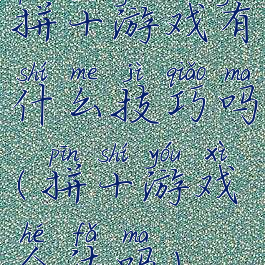 拼十游戏有
shí me jì qiǎo ma
什么技巧吗
pīn shí yóu xì
(拼十游戏
hé fǎ ma
合法吗)